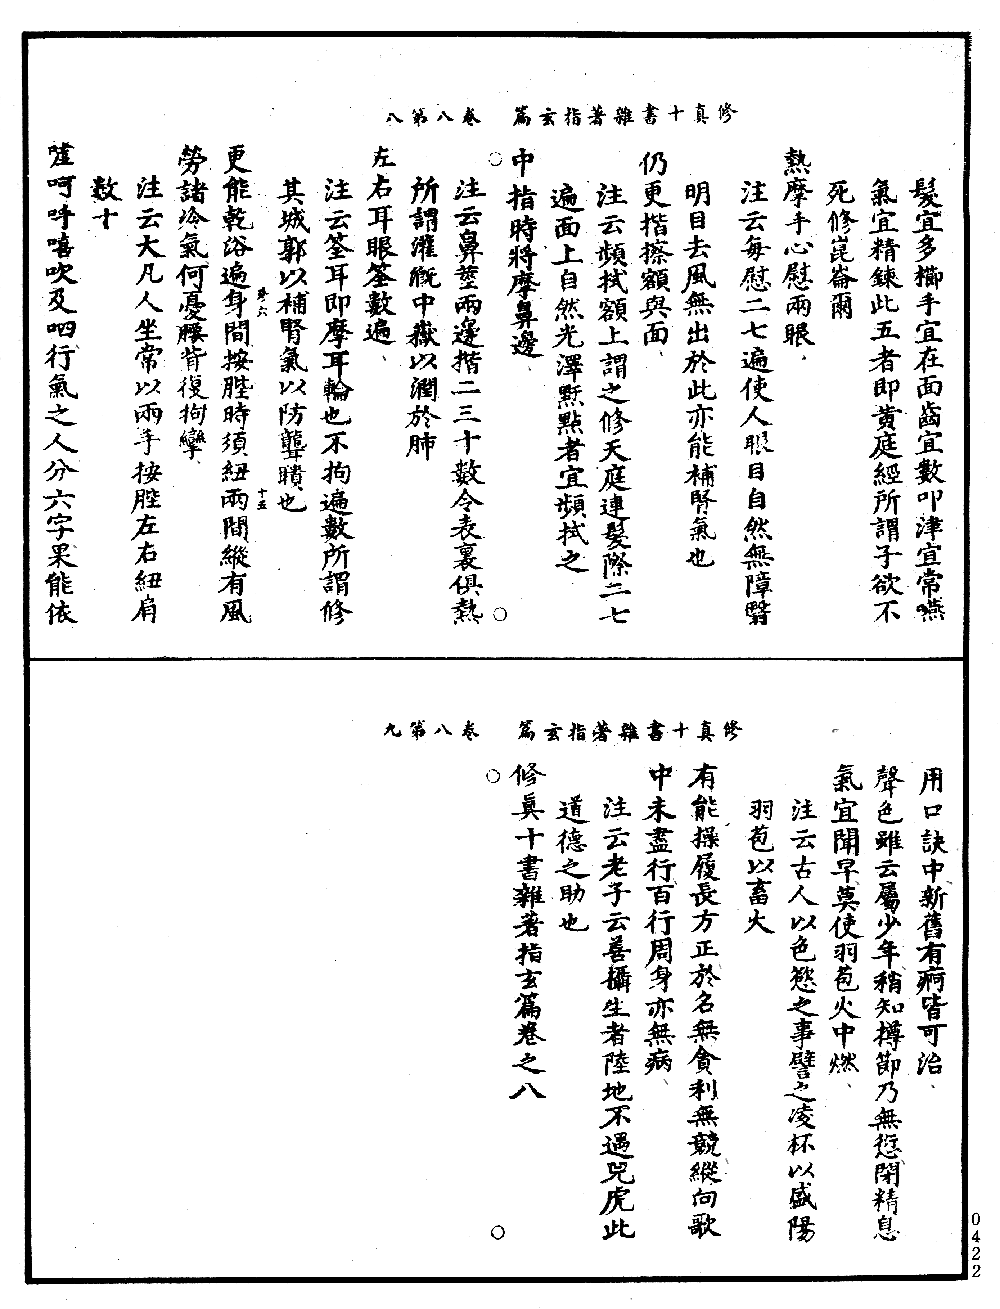 修真十書雜著指玄篇　卷八第八
髮宜多櫛手宜在面齒宜數叩津宜常嚥
氣宜精鍊此五者即黃庭經所謂子欲不
死修崑崙爾
熱摩手心慰兩眼
注云每慰二七遍使人眼目自然無障翳
明目去風無出於此亦能補腎氣也
仍更揩擦額與面
注云頻拭額上謂之修天庭連髮際二七
遍面上自然光澤䵟點者宜頻拭之
中指時將摩鼻邊
注云鼻莖兩邊揩二三十數令表裏俱熱
所謂灌溉中嶽以潤於肺
左右耳眼筌數遍
注云筌耳即摩耳輪也不拘遍數所謂修
其城郭以補腎氣以防聾聵也
更能乾浴遍身間按䏶時須紐兩間縱有風
勞諸冷氣何憂腰背復拘攣
注云大凡人坐常以兩手按䏶左右紐肩
數十
噓呵呼嘻吹及呬行氣之人分六字果能依
修真十書雜著指玄篇　卷八第九
用口訣中新舊有痾皆可治
聲色雖云屬少年稍知樽節乃無愆閑精息
氣宜聞早莫使羽苞火中燃
注云古人以色慾之事譬之凌杯以盛陽
羽苞以畜火
有能操履長方正於名無貪利無競縱向歌
中未盡行百行周身亦無病
注云老子云善攝生者陸地不遇兕虎此
道德之助也
修真十書雜著指玄篇卷之八
0422